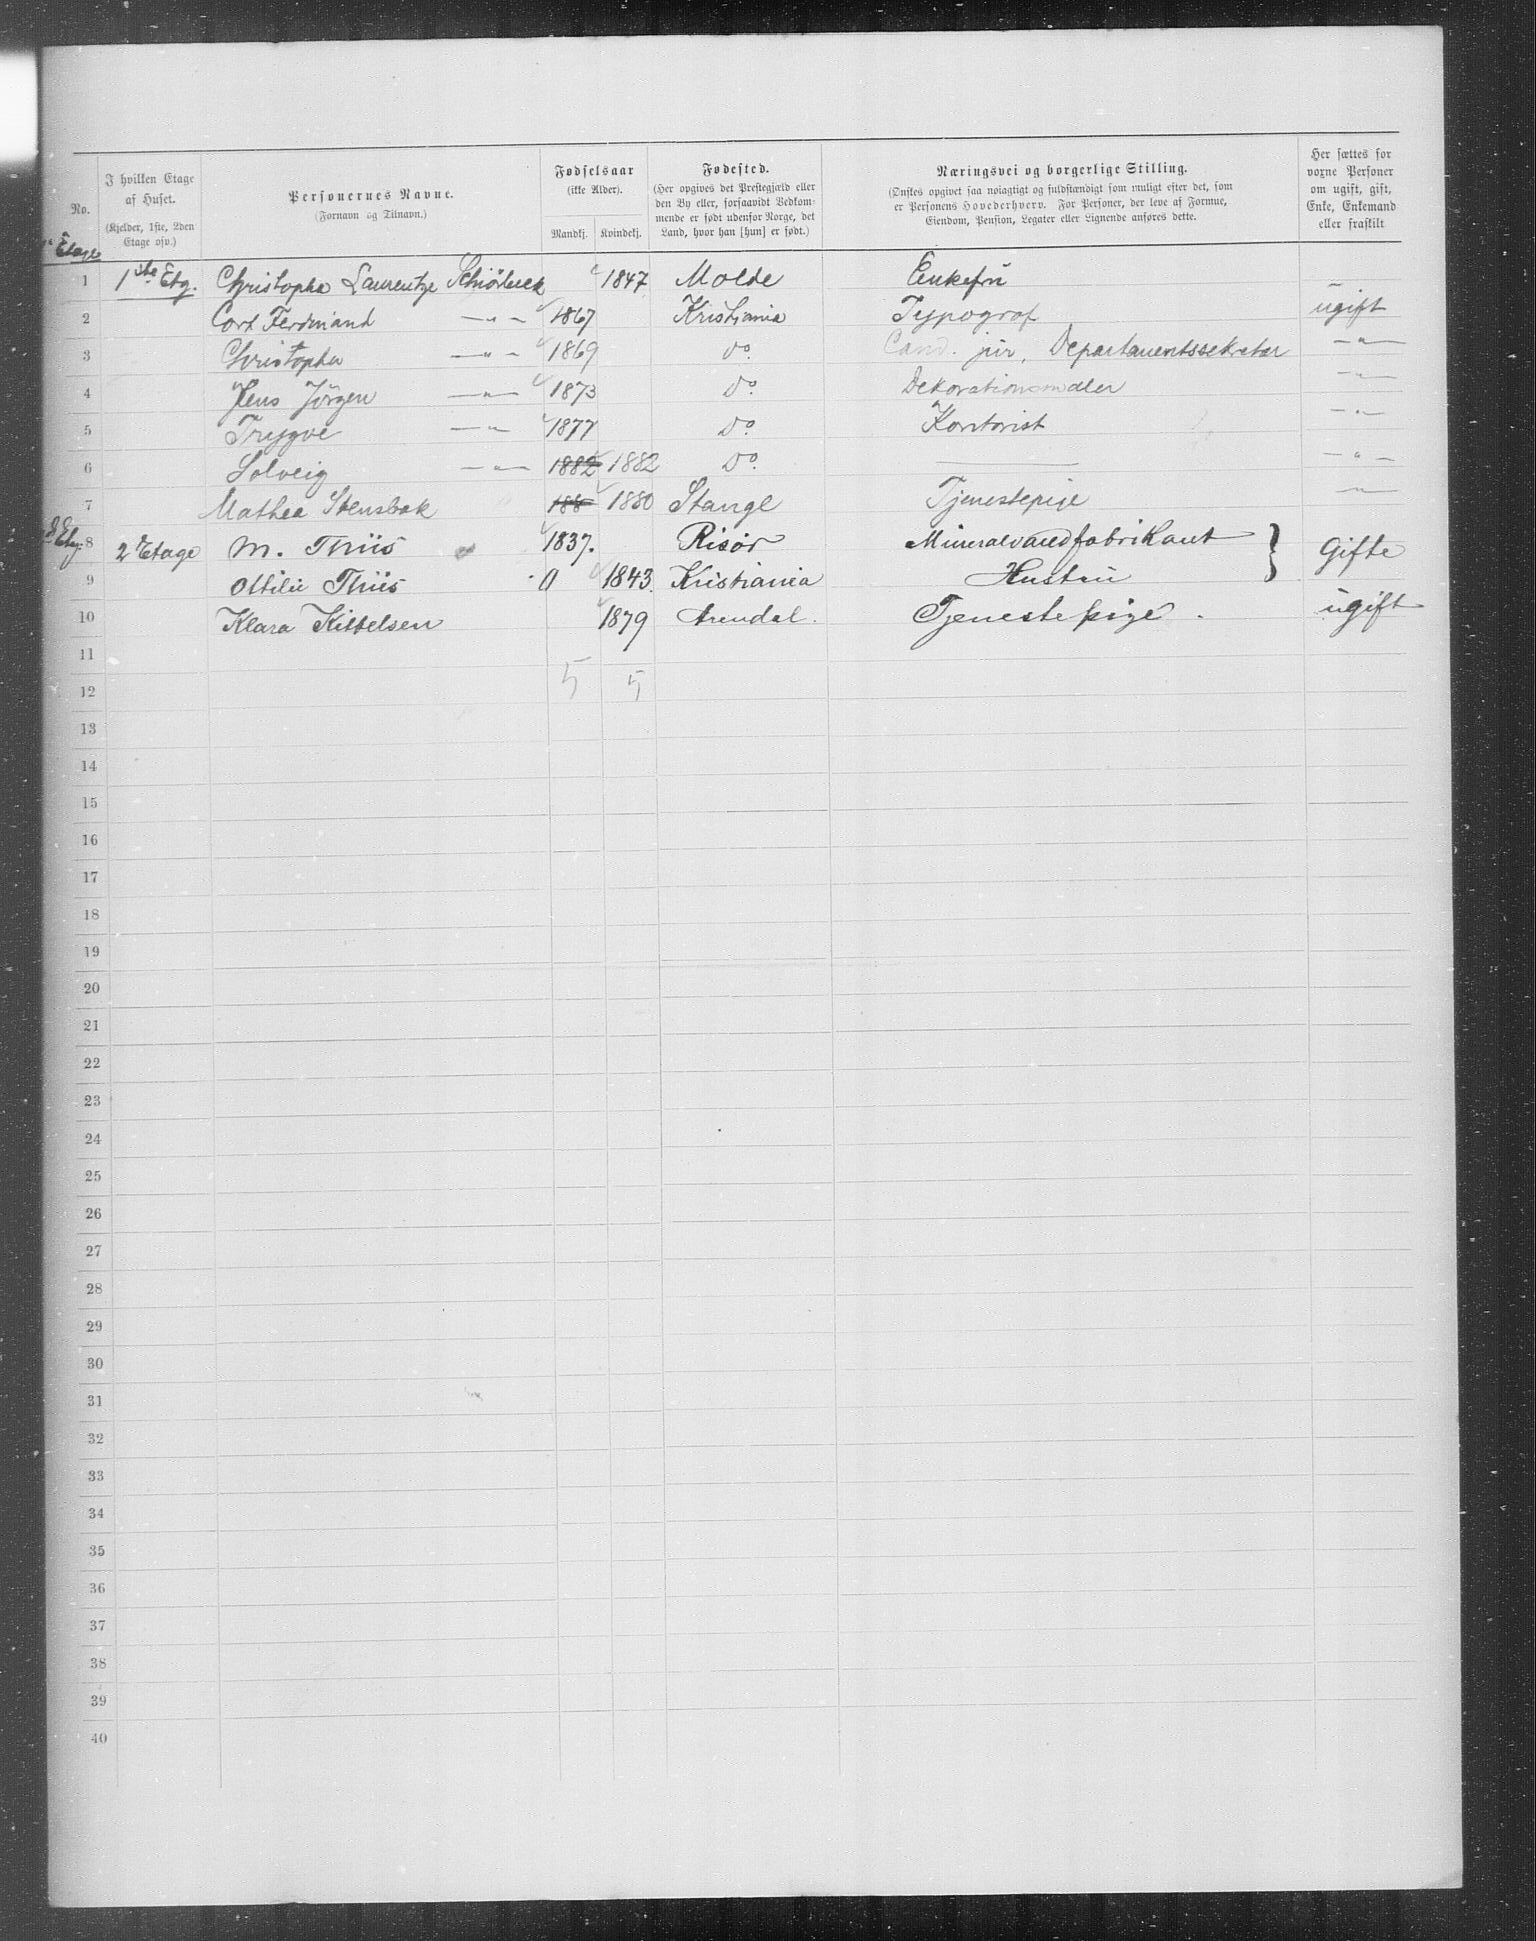 No.
I hvilken Etage
af Huset.
(Kjelder, 1ste, 2den
Etage osv.)
Personernes Navne.
(Fornavn og Tilnavn.)
Fødselsaar
(ikke Alder).
Mandkj. Kvindekj.
Fødested.
(Her opgives det Prestegjæld eller
den By eller, forsaavidt Vedkom-
mende er født udenfor Norge, det
Land, hvor han [hun] er født.)
Næringsvei og borgerlige Stilling.
(Ønskes opgivet saa nøiagtigt og fuldstændigt som muligt efter det, som
er Personens Hovederhverv. For Personer, der leve af Formue,
Eiendom, Pension, Legater eller Lignende anføres dette.
Her sættes for
voxne Personer
om ugift, gift,
Enke, Enkemand
eller fraskilt
Etage
1 1ste Etg. Christopha Laurentze Schiörbeck 1847 Molde Enkefrü
2 Cort Ferdinand —„— 1867 Kristiania Typograf ügift
3 Christopher —„— 1869 Do. Cand. jür, Departementssekretær —„—
4 Jens Jörgen —„— 1873 Do. Dekorationsmaler —„—
5 Trygve —„— 1877 Do. Kontorist —„—
6 Solveig —„— 1882 1882 Do. —— —„—
7 Mathea Stensbak 188 1880 Stange Tjenestepige —„—
Etg. 8 2 Etage M. Thiis 1837. Risør Mineralvandfabrikant } Gifte
9 Ottilie Thiis 0 1843. Kristiania Hustrü
10 Klara Kittelsen 1879 Arendal. Tjenestepige. ügift
11
12 5 5
13
14
15
16
17
18
19
20
21
22
23
24
25
26
27
28
29
30
31
32
33
34
35
36
37
38
39
40